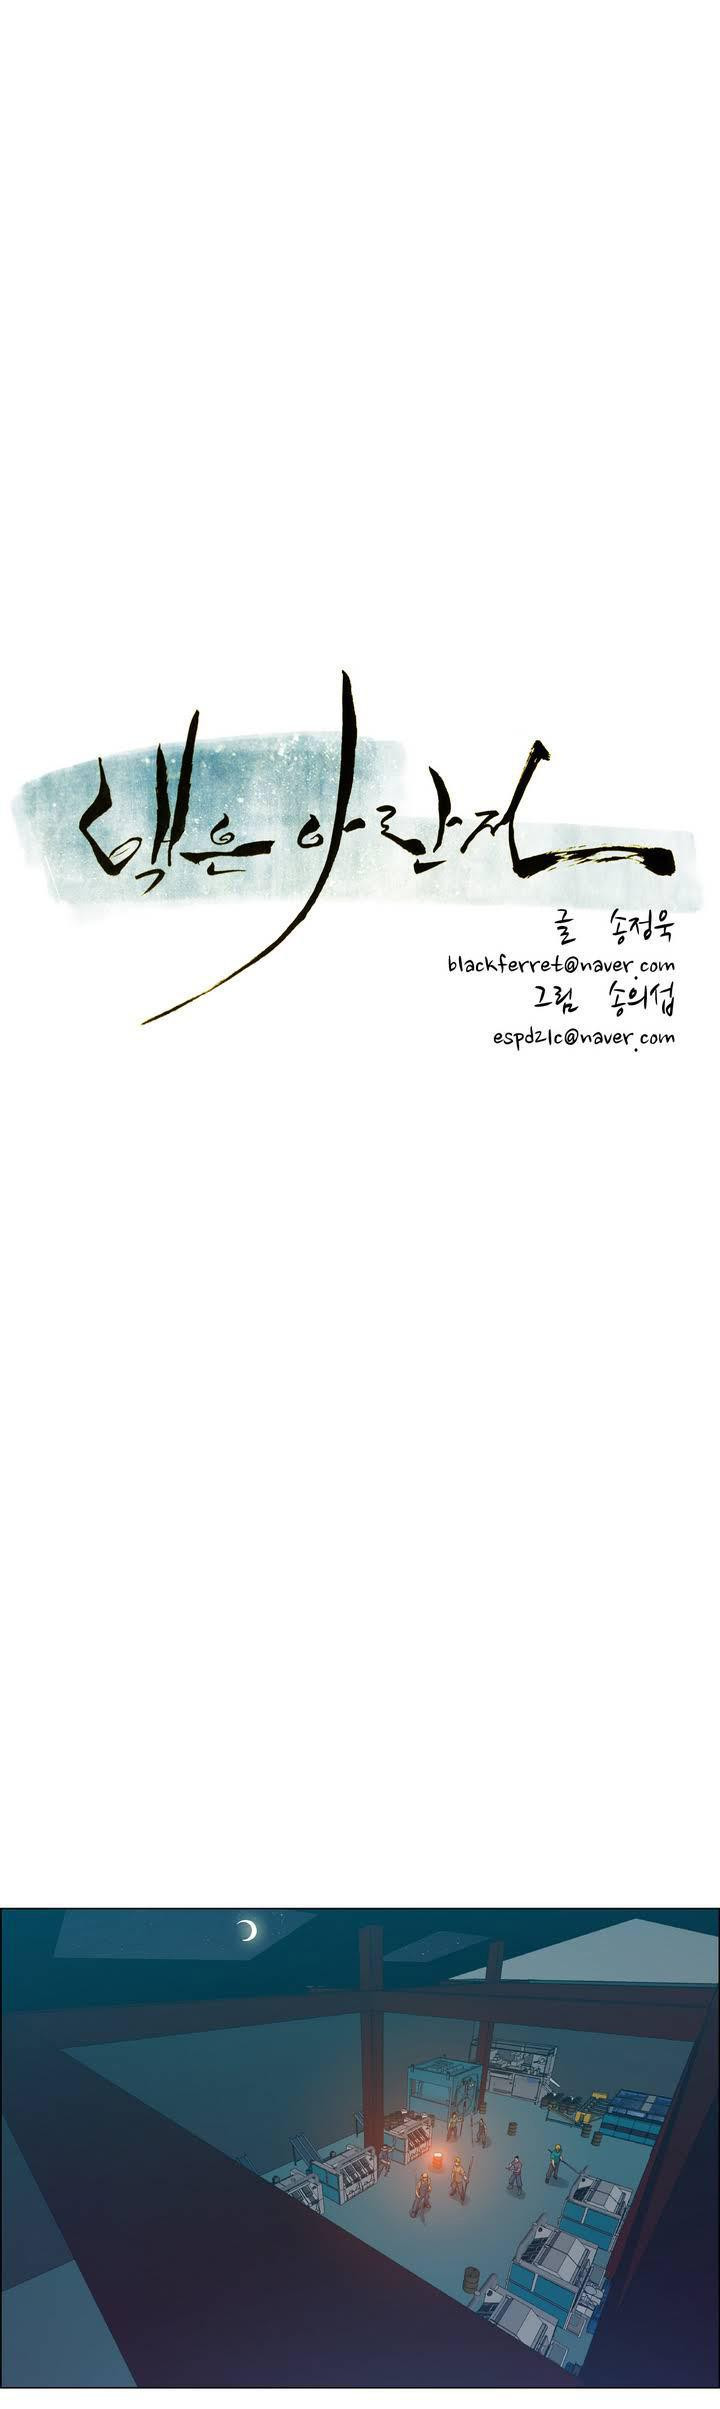 맺은 아란지
글 송정욱
blackferret@naver.com
그림 송의섭
espd21c@naver.com